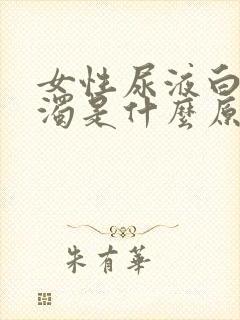 女性尿液白
濁是什麼原
朱有華